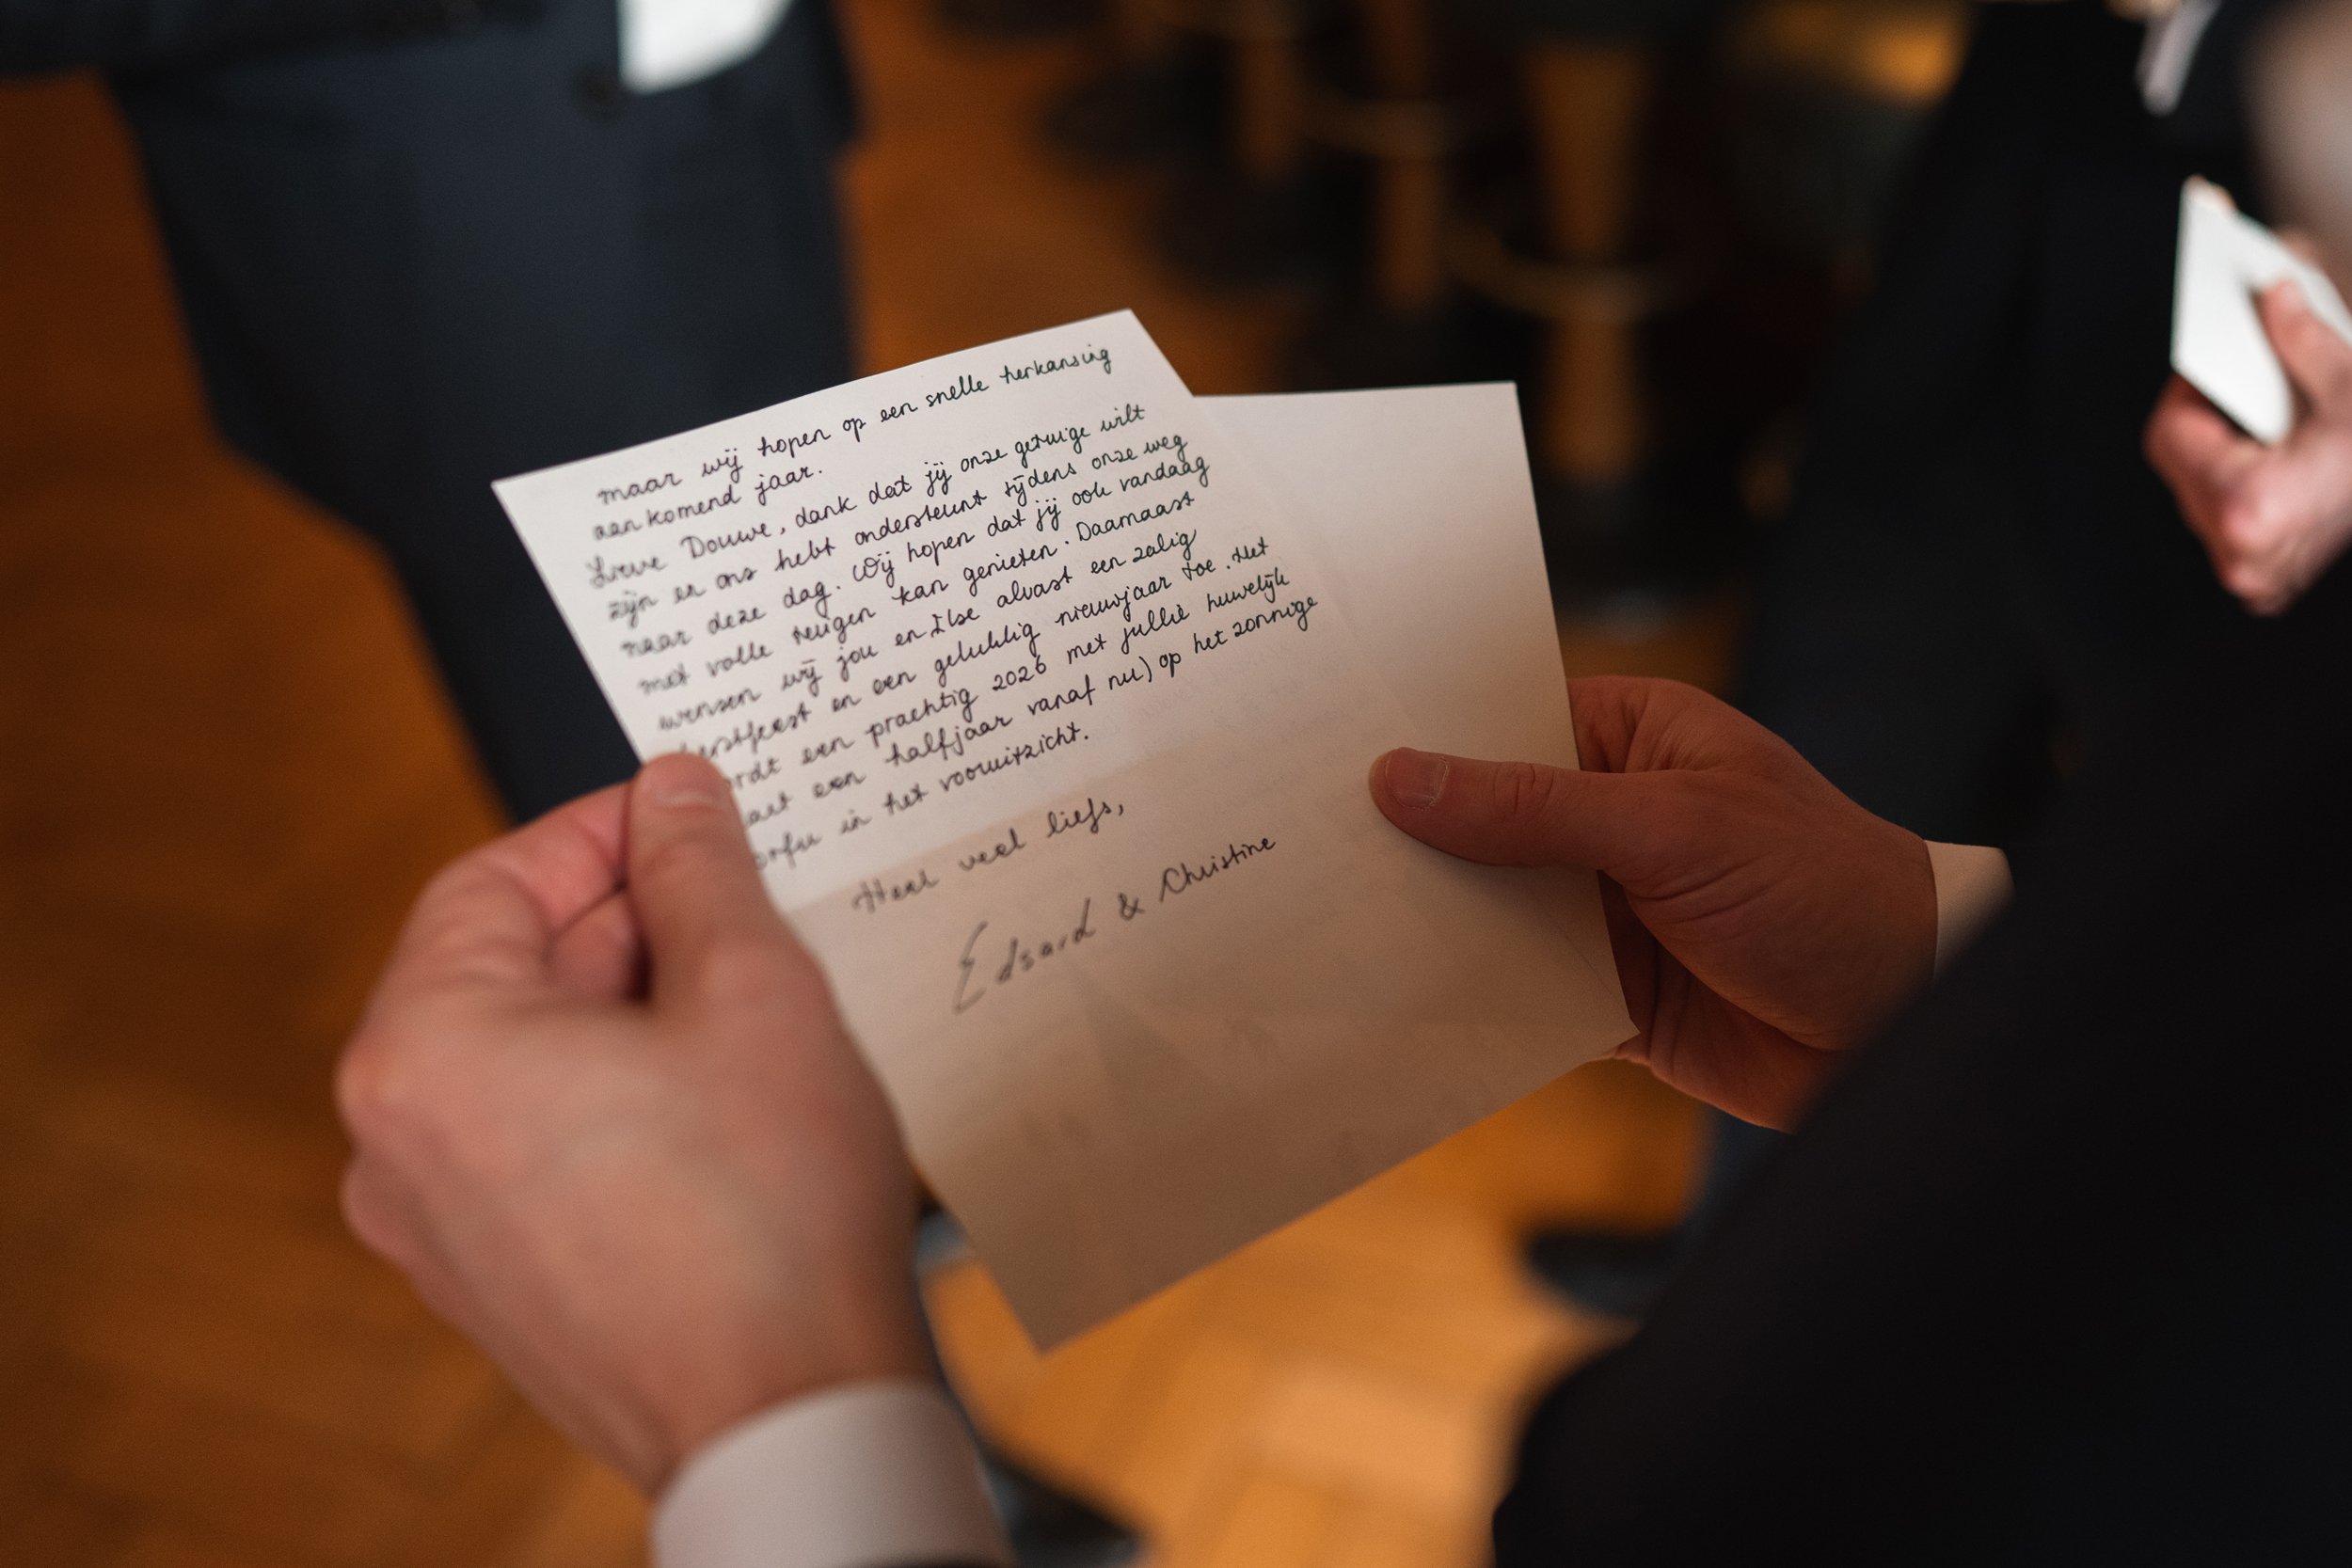 maar wij hopen op een snelle herkansing
aankomend jaar.
Lieve Douwe, dank dat jij onze getuige wilt
zijn en ons hebt ondersteunt tijdens onze weg
naar deze dag. Wij hopen dat jij ook vandaag
met volle teugen kan genieten. Daarnaast
wensen wij jou en Ilse alvast een zalig
kerstfeest en een gelukkig nieuwjaar toe. Het
ordt een prachtig 2026 met jullie huwelijk
een halfjaar vanaf nu) op het zonnige
orfu in het vooruitzicht.
Heel veel liefs,
Edsard & Christine